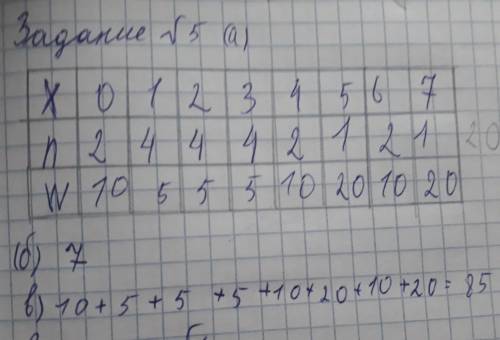 Задание √5 (а)
X 0 1 2 3 4 5 6 7
n 2 4 4 4 2 1 2 1 20
W 10 5 5 5 10 20 10 20
(б) 7
в) 10 + 5 + 5 + 5 + 10 + 20 + 10 + 20 = 85